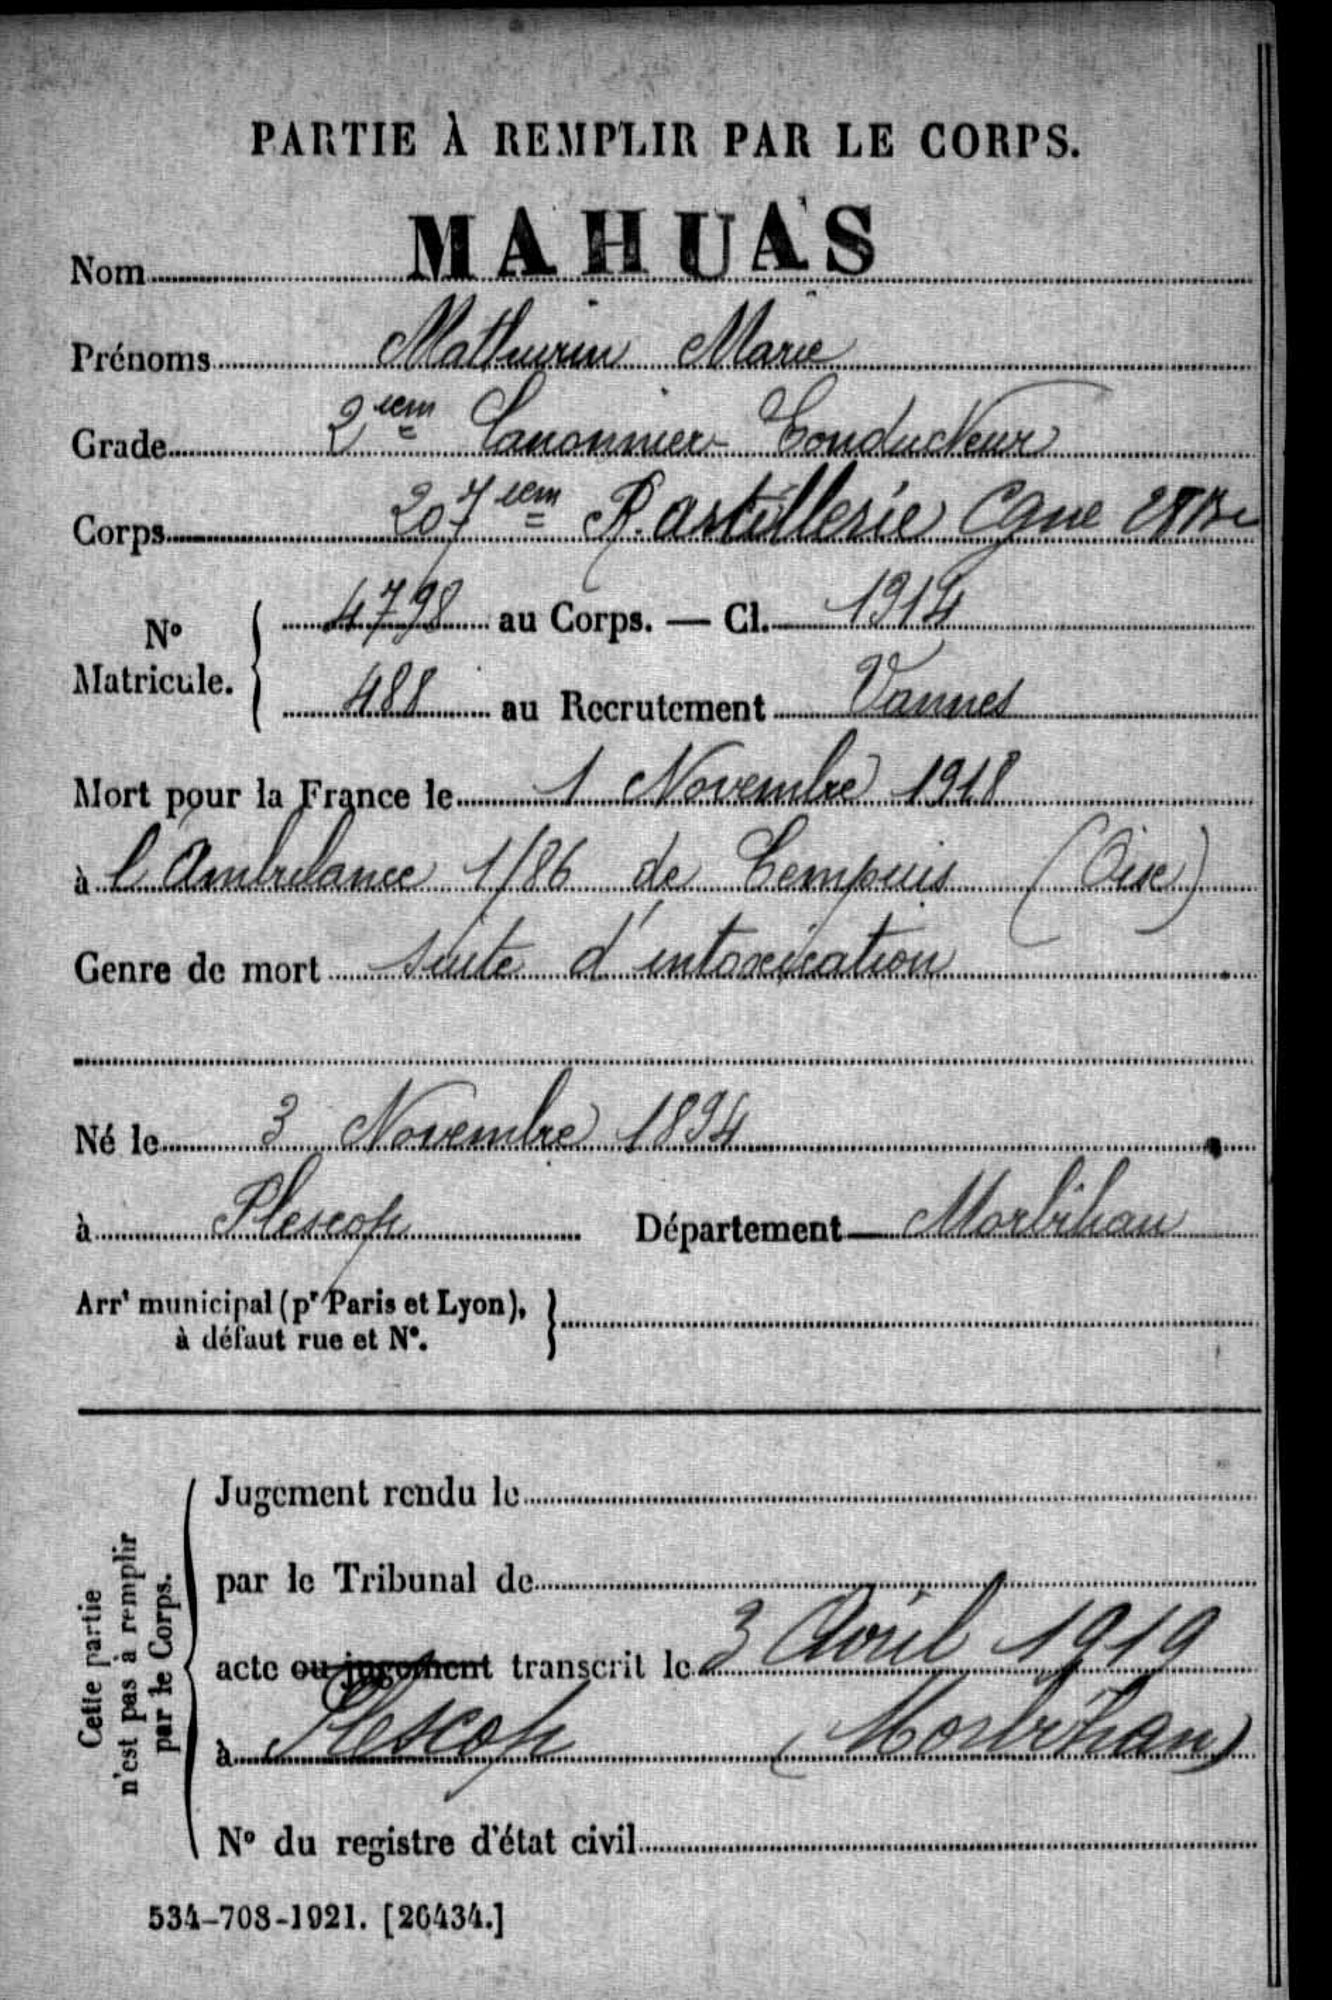 PARTIE À REMPLIR PAR LE CORPS.
Nom MAHUAS
Prénoms Mathurin Marie
Grade 2iem Canonnier Conducteur
Corps 207iem R. artillerie Cgne
No Matricule. { 4798 au Corps. — Cl. 1914
488 au Recrutement Vannes
Mort pour la France le 1 Novembre 1918
à l'Ambulance 1/86 de Cempuis (Oise)
Genre de mort suite d'intoxication
Né le 3 Novembre 1894
à Plescop Département Morbihan
Arrt municipal (pr Paris et Lyon), }
à défaut rue et No.
Cette partie
n'est pas à remplir
par le Corps.
Jugement rendu le
par le Tribunal de
acte ou jugement transcrit le 3 Avril 1919
à Plescop (Morbihan)
No du registre d'état civil
534-708-1921. [26434.]